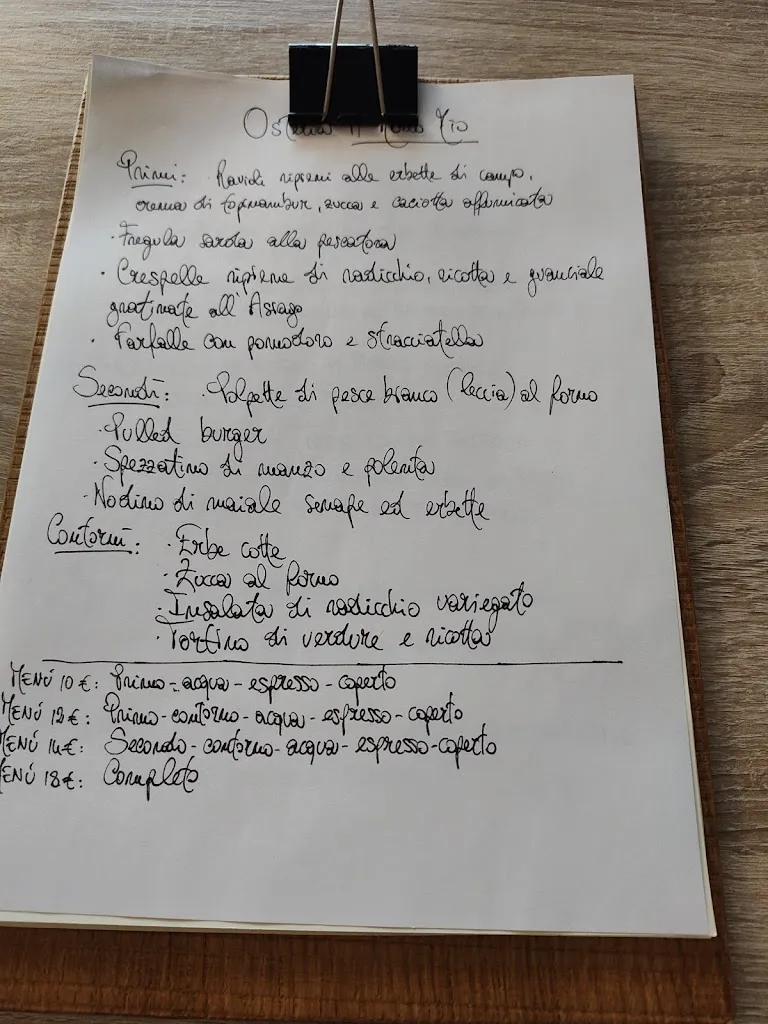 Osteria A Modo Mio
Primi: · Ravioli ripieni alle erbette di campo,
crema di topinambur, zucca e caciotta affumicata
· Fregula sarda alla pescatora
· Crespelle ripiene di radicchio, ricotta e guanciale
gratinate all'Asiago
· Farfalle con pomodoro e stracciatella
Secondi: · Polpette di pesce bianco (leccia) al forno
· Pulled burger
· Spezzatino di manzo e polenta
· Nodino di maiale senape ed erbette
Contorni: · Erbe cotte
· Zucca al forno
· Insalata di radicchio variegato
· Tortino di verdure e ricotta
MENÙ 10 €: Primo - acqua - espresso - coperto
MENÙ 12 €: Primo - contorno - acqua - espresso - coperto
MENÙ 14 €: Secondo - contorno - acqua - espresso - coperto
MENÙ 18 €: Completo